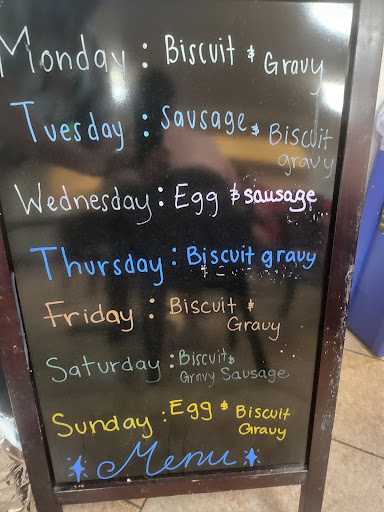 Monday : Biscuit & Gravy
Tuesday : Sausage & Biscuit
gravy
Wednesday : Egg & sausage
Thursday : Biscuit gravy
Friday : Biscuit &
Gravy
Saturday : Biscuit &
Gravy Sausage
Sunday : Egg & Biscuit
Gravy
Menu